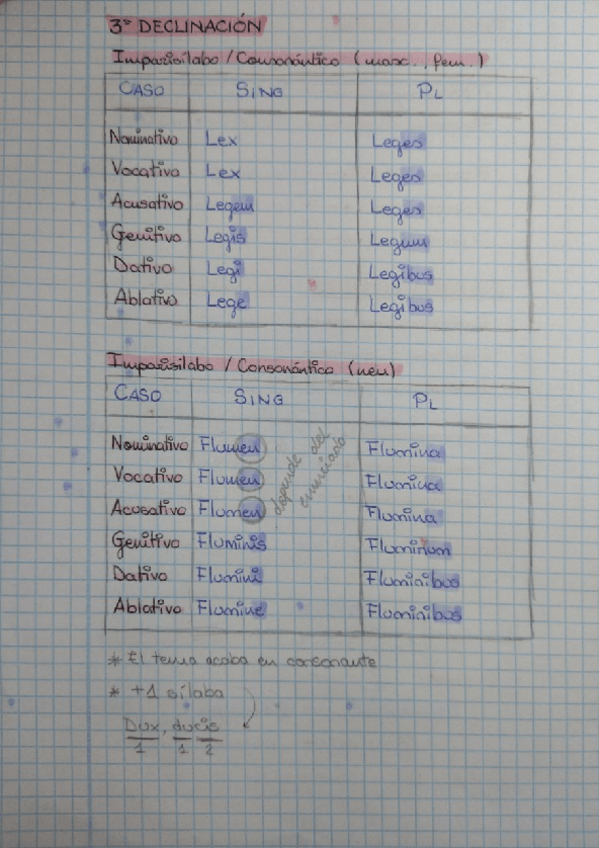 3ª DECLINACIÓN
Imparisílabo / Consonántico (masc., fem.)
CASO SING PL
Nominativo Lex Leges
Vocativo Lex Leges
Acusativo Legem Leges
Genitivo Legis Legum
Dativo Legi Legibus
Ablativo Lege Legibus
Imparisílabo / Consonántico (neu)
CASO SING PL
Nominativo Flumen Flumina
Vocativo Flumen Flumina
Acusativo Flumen Flumina
depende del
enunciado
Genitivo Fluminis Fluminum
Dativo Flumini Fluminibus
Ablativo Flumine Fluminibus
* El tema acaba en consonante
* +1 sílaba
Dux, ducis
1 1 2